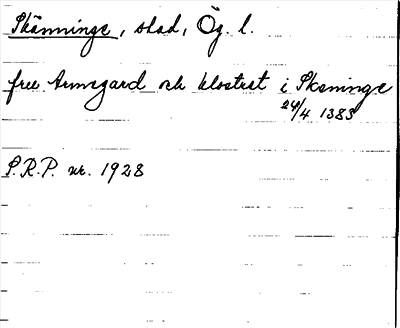 Skänninge, stad, Ög. l.
frw Armegard ok klostret i Skeninge
24/4 1383
S.R.P. nr. 1928